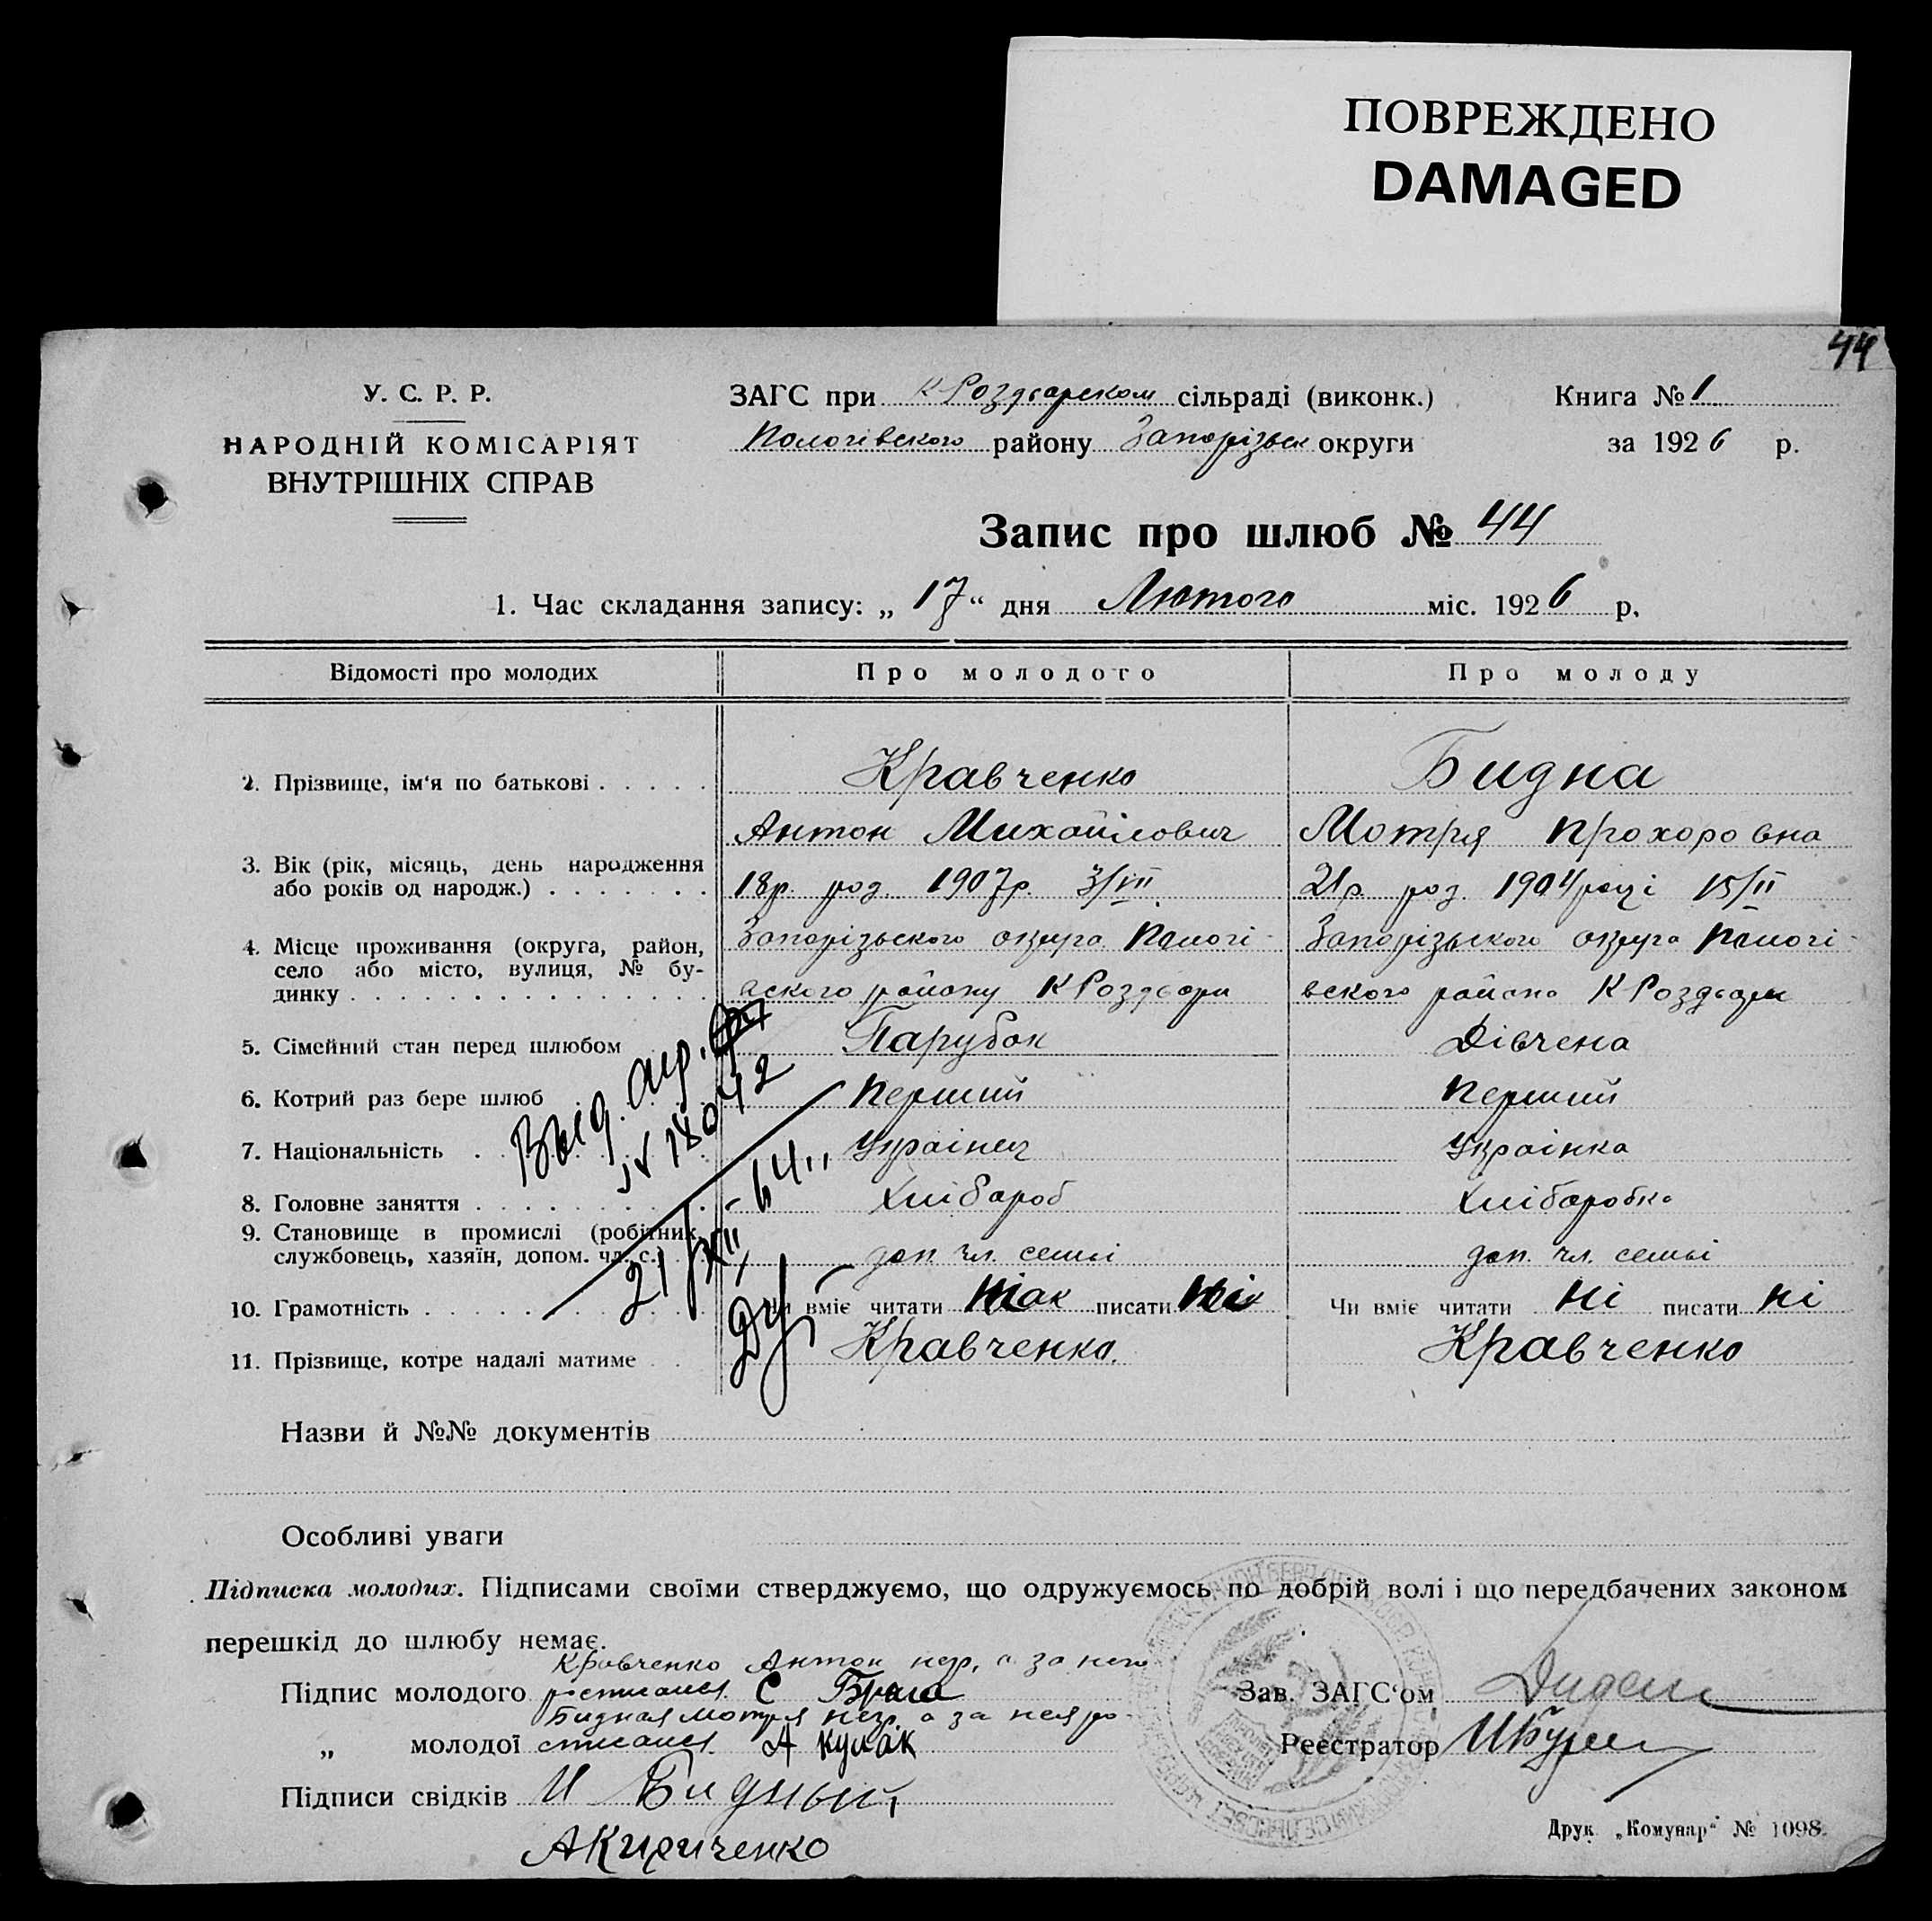 ПОВРЕЖДЕНО
DAMAGED
44
У. С. Р. Р.
НАРОДНІЙ КОМІСАРІЯТ
ВНУТРІШНІХ СПРАВ
ЗАГС при К Роздорском сільраді (виконк.)
Пологівского району Запорізьк округи
Книга № 1
за 1926 р.
Запис про шлюб № 44
1. Час складання запису: „ 17 “ дня Лютого міс. 1926 р.
Відомості про молодих Про молодого Про молоду
2. Прізвище, ім'я по батькові Кравченко Бидна
Антон Михайлович Мотря Прохоровна
3. Вік (рік, місяць, день народження
або років од народж.) 18р. род. 1907р. 3/VII 21р. род. 1904 році 15/II
4. Місце проживання (округа, район,
село або місто, вулиця, № бу-
динку
Запорізьского округа Пологі- Запорізького округа Пологі-
вского району К Роздори вского району К Роздори
5. Сімейний стан перед шлюбом Парубок Дівчена
6. Котрий раз бере шлюб Перший Перший
7. Національність Украінец Украінка
8. Головне заняття Хлібороб Хліборобка
9. Становище в промислі (робітник,
службовець, хазяїн, допом. чл. с.) доп. чл. семьі доп. чл. семьі
10. Грамотність Чи вміє читати так писати Чи вміє читати Ні писати Ні
11. Прізвище, котре надалі матиме Кравченко. Кравченко
Выд.
№ 18042
21/XII-64
Назви й №№ документів
Особливі уваги
Підписка молодих. Підписами своїми стверджуємо, що одружуємось по добрій волі і що передбачених законом
перешкід до шлюбу немає.
Кравченко Антон негр, а за него
Підпис молодого росписался С
Бидная Мотря негр а за нея ро-
„ молодої списался. А Кулак
Підписи свідків И Бидный
А Кириченко
Зав. ЗАГС'ом
Реєстратор
Друк. „Комунар“ № 1098.